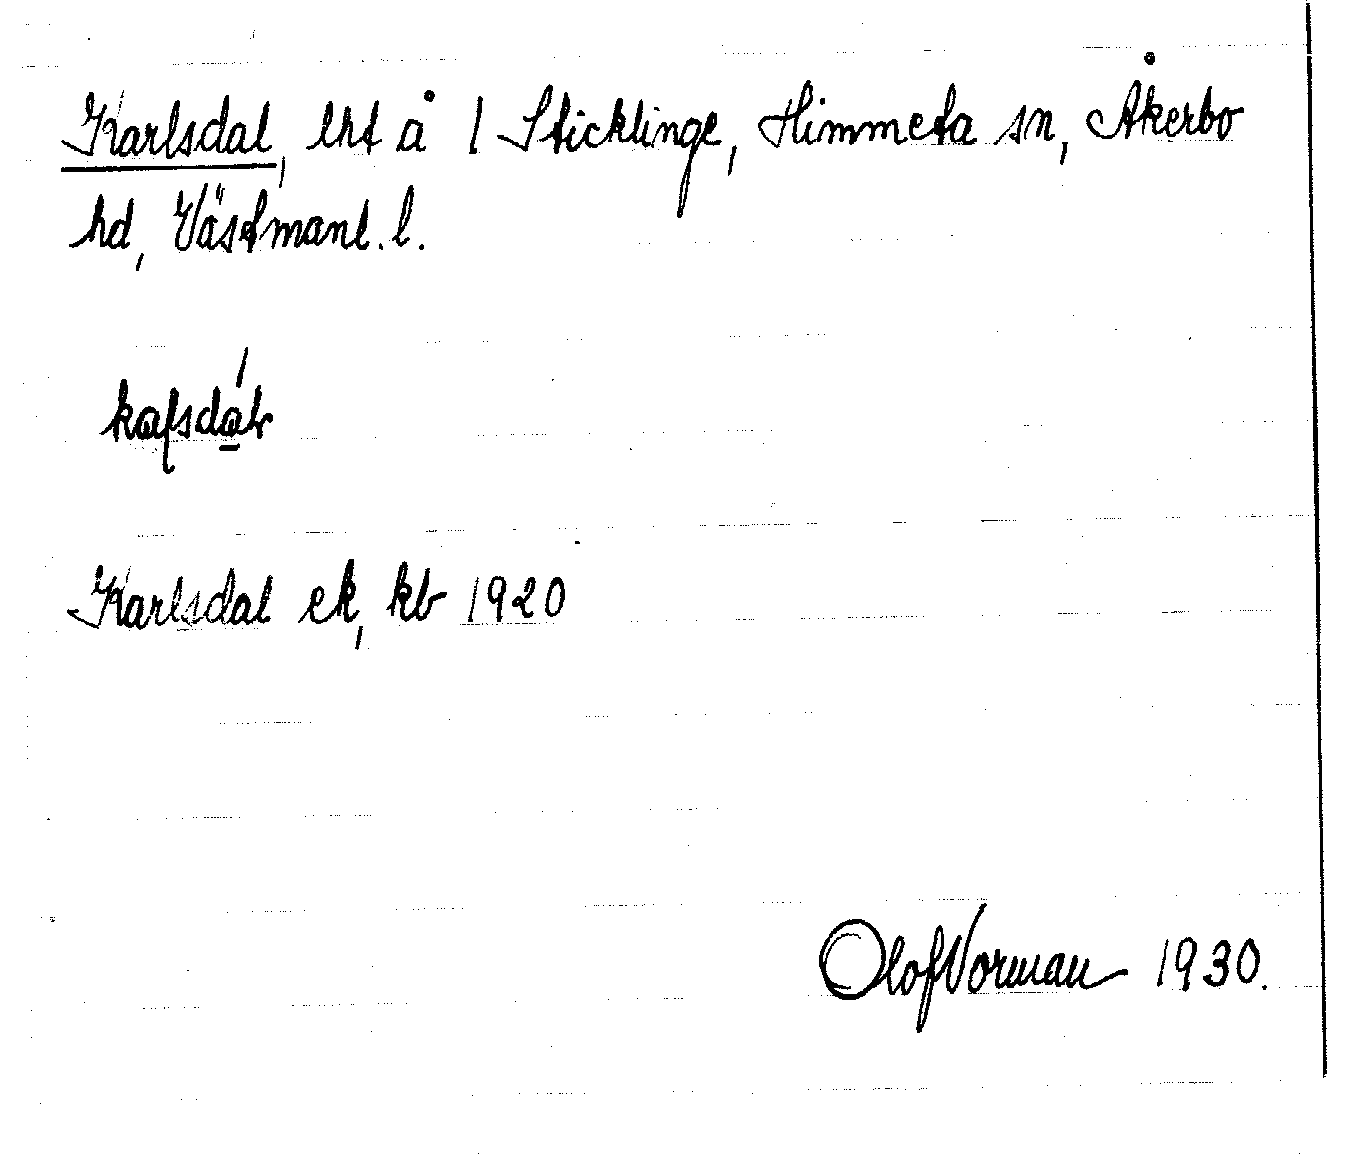 Karlsdal, lht å 1 Sticklinge, Himmeta sn, Åkerbo
hd, Västmanl. l.
Karlsdal ek, kb 1920
Olof Norman 1930.